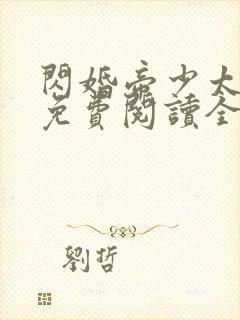 閃婚帝少太
免費閱讀全
劉哲